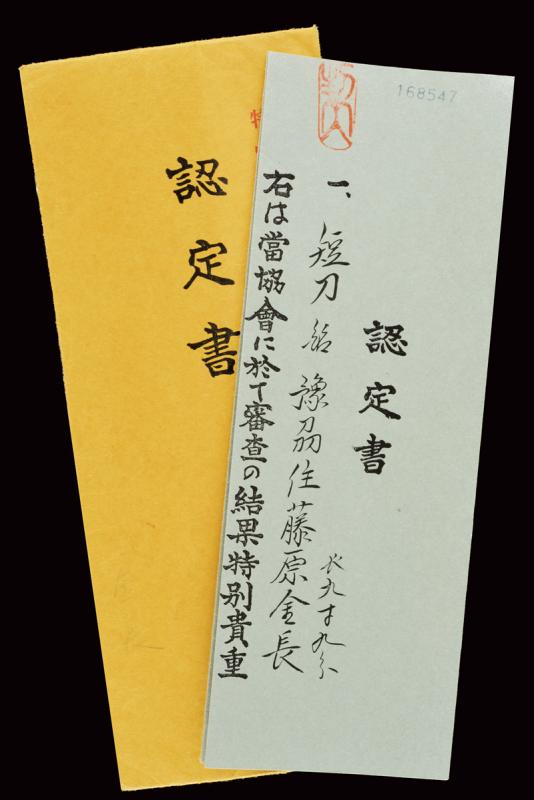 168547
認定書
一、短刀 銘 豫州住藤原金長
長九寸九分
右は當協會に於て審査の結果特別貴重
認定書
特